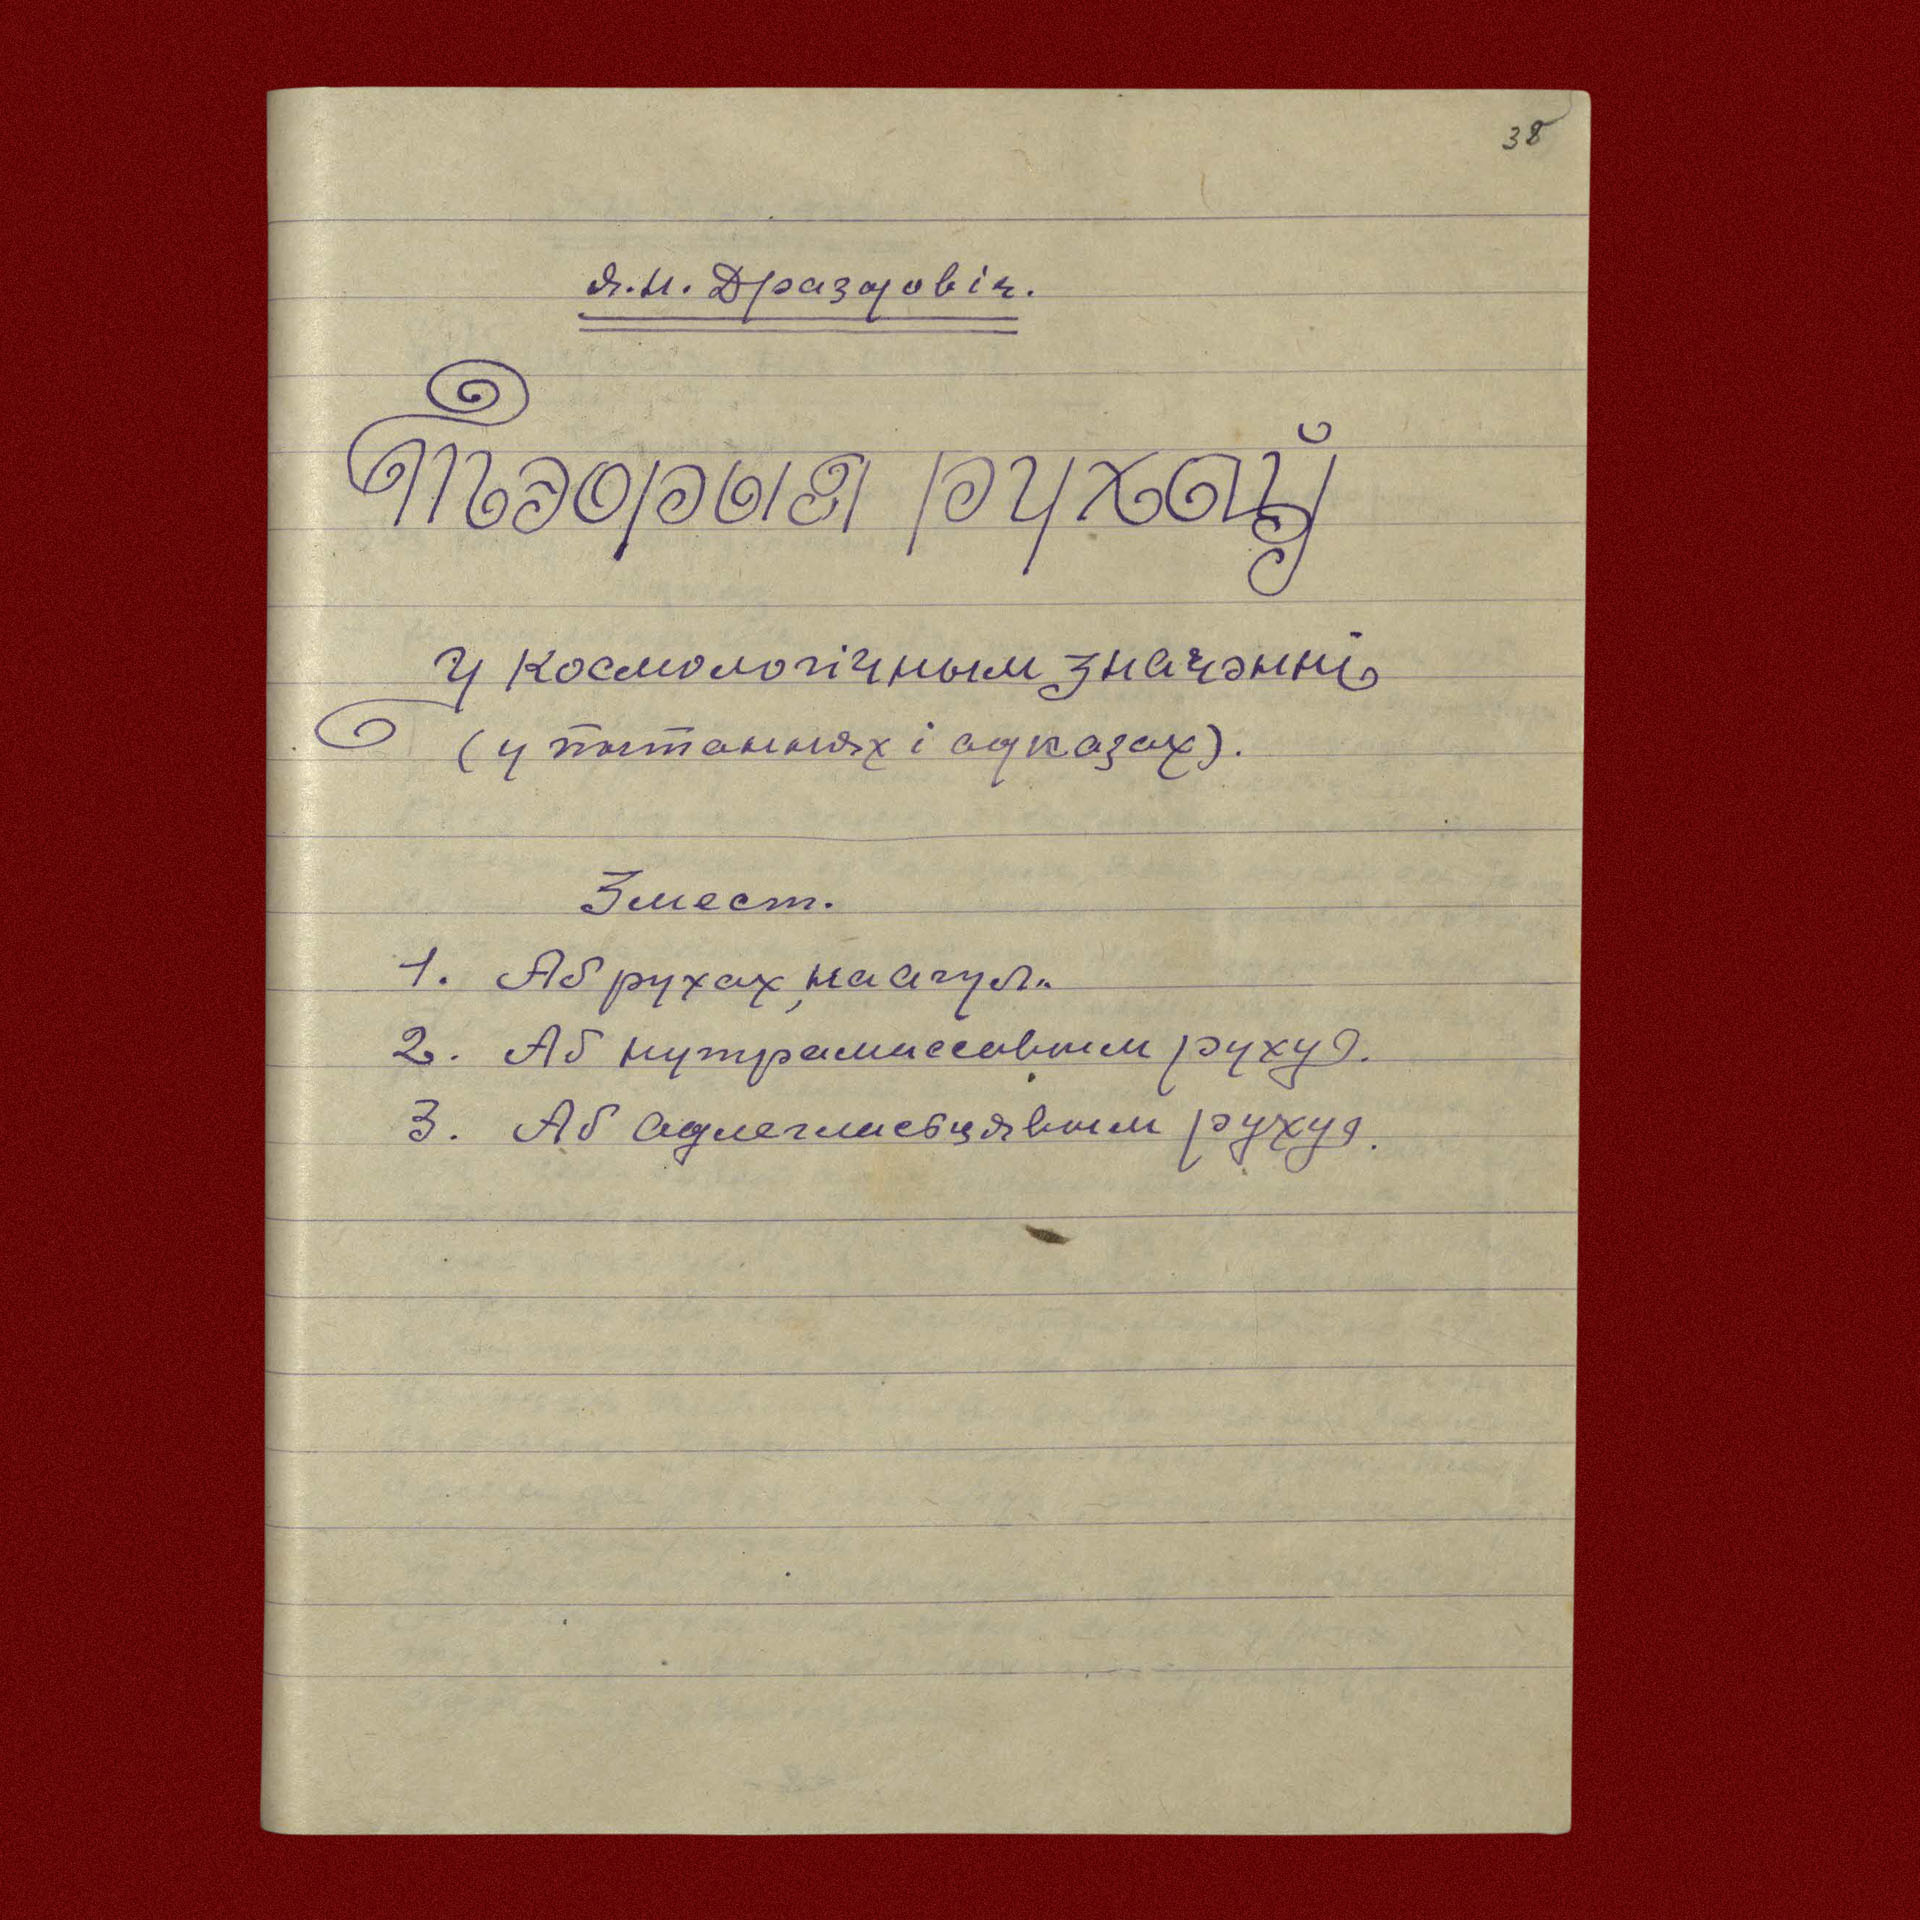 38
Я.Н. Драздовіч.
Тэорыя рухаў
у космологічным значэнні
(у пытаннях і адказах).
Змест.
1. Аб рухах, наагул.
2. Аб нутрамассавым руху.
3. Аб адлегласьцявым руху.